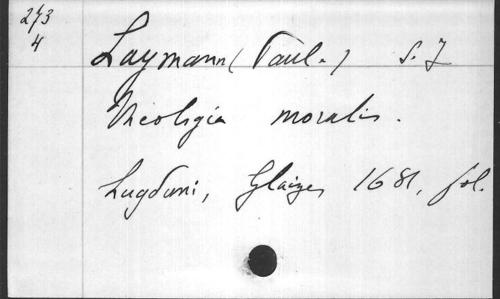 273
4
Laymann (Paul.) S. J
Theologia moralis.
Lugduni, Glaize, 1681, fol.